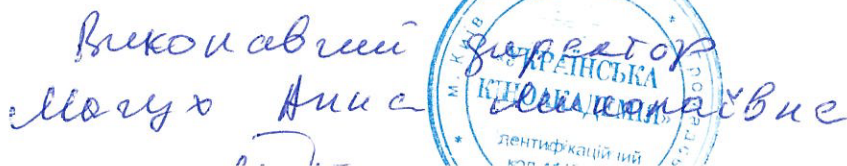 Виконавчий директор
Мачух Анна Миколаївна
м. Київ
«УКРАЇНСЬКА
КІНОАКАДЕМІЯ»
дентифікаційний
код